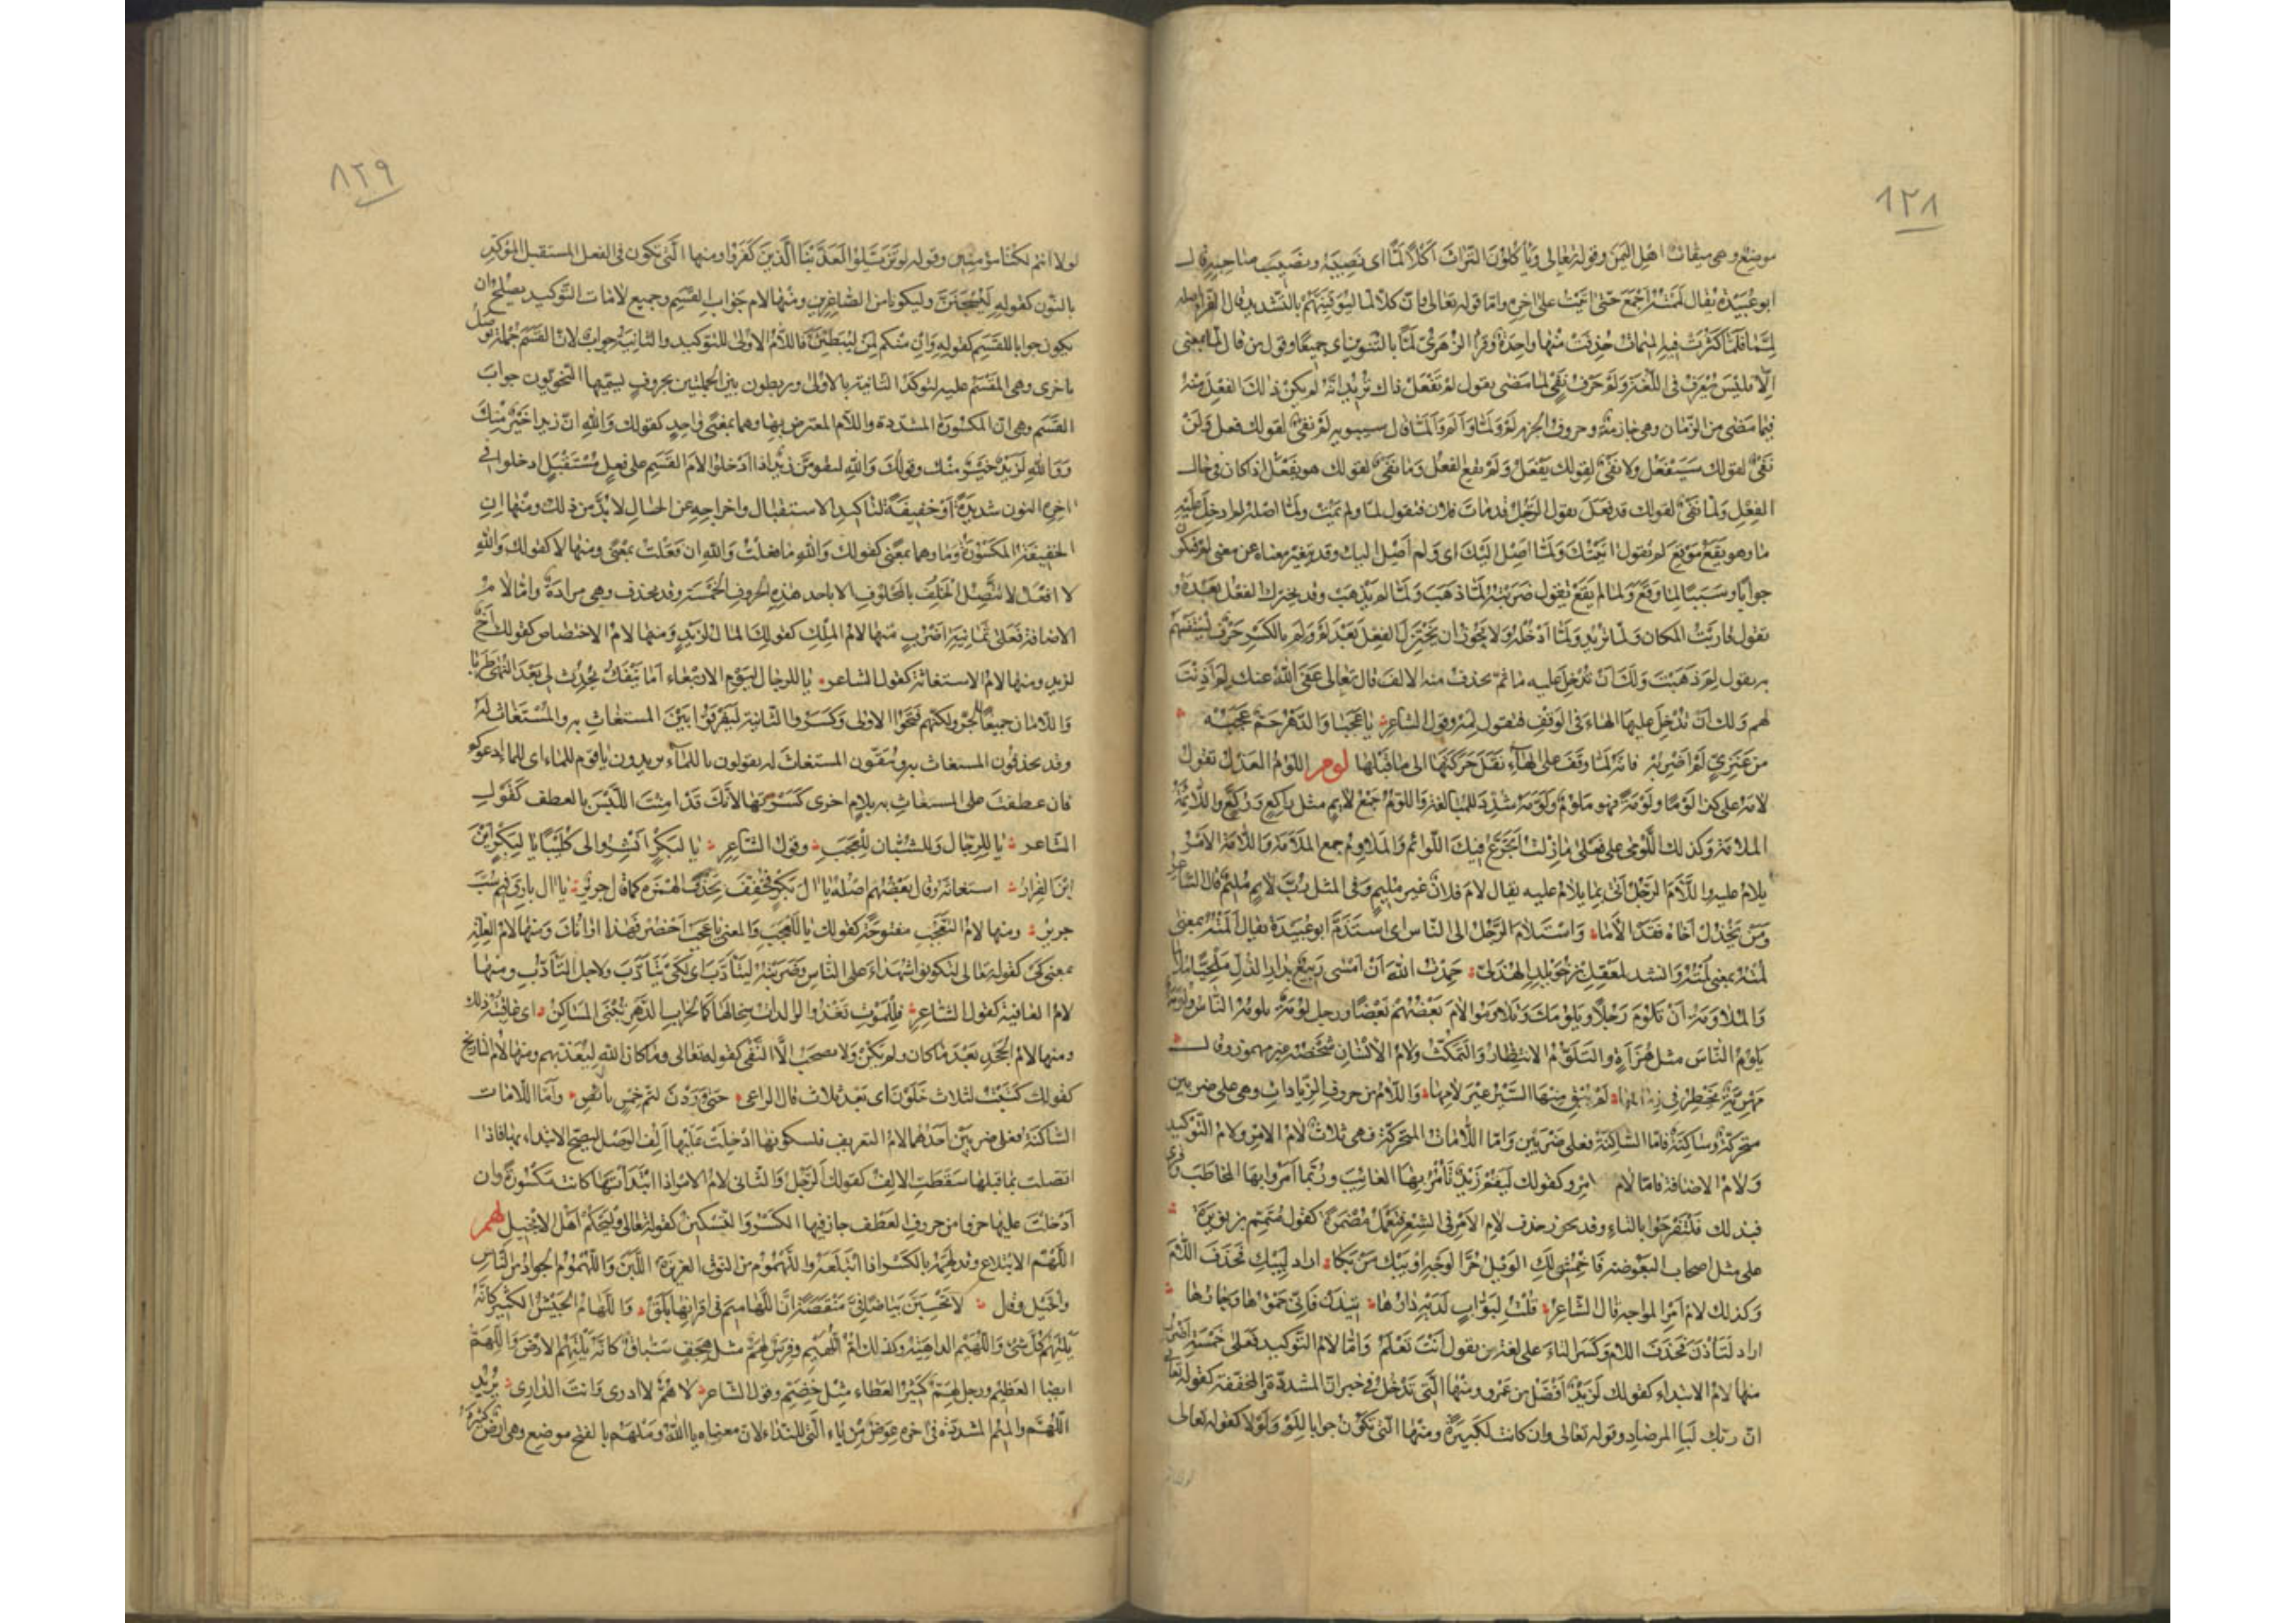 ٨٢٨
موضع وهي ميقات اهل اليمن وقوله تعالى وياكلون التراث اكلا لمّا اى نصيبه ونصيب صاحبه قال
ابو عبيدة يقال لممته اجمع حتى اتيت على اخره واما قوله تعالى وانّ كلا لما ليوفينهم بالتشديد قال الفراء اصله
لممّا فلما كثرت فيه الميمات حذفت منها واحدة وقرأ الزهرى لمّا بالتنوين اى جميعا وقول من قال لما بمعنى
الّا فليس يعرف فى اللغة ولم حرف نفى لما مضى يقول لم تفعل ذاك تريد انه لم يكن ذلك الفعل منه
فيما مضى من الزمان وهى جازمة وحروف الجزم لم ولمّا والم والمّا قال سيبويه لم نفى لقولك فعل ولن
نفى لقولك سيفعل ولا نفى لقولك يفعل ولم يقع الفعل وما نفى لقولك هو يفعل اذا كان فى حال
الفعل ولما نفى لقولك قد فعل يقول الرجل قد مات فلان فتقول لما ولم يمت ولما اصله لم ادخل عليه
ما وهو يقع موقع لم تقول اتيتك ولما اصل اليك اى ولم اصل اليك وقد يتغير معناه عن معنى لم فتكون
جوابا وسببا لما وقع ولما لم يقع تقول ضربته لما ذهب ولما لم يذهب وقد يختزل الفعل بعده و
تقول قاربت المكان ولما تريد ولما ادخله ولا يجوز ان يختزل الفعل بعد لم ولم بالكسر حرف يستفهم
به يقول لم ذهبت ولك ان تدخل عليه ما ثم يحذف منه الالف قال تعالى عفى الله عنك لم اذنت
لهم ولك ان تدخل عليها الهاء فى الوقف فتقول لمه وقول الشاعر يا عجبا والدهر جم عجبه
من عنزى لم اضربه فانه لما وقف على الهاء نقل حركتها الى ما قبلها لوم اللوم العذل تقول
لامه على كذا لوما ولومة فهو ملوم ولوّمه شدد للمبالغة واللوّم جمع لايم مثل راكع وركّع واللائمة
الملامة وكذلك اللومى على فعلى ما زلت اتجرع فيك اللوائم والملاوم جمع الملامة واللامة الامر
يلام عليه والام الرجل اتى بما يلام عليه يقال لام فلان غير مليم وفى المثل ربّ لايم مليم قال الشاعر
ومن يخذل اخاه فقد الاما واستلام الرجل الى الناس اى استذم ابو عبيدة يقال المته بمعنى
لمته بمعنى لمته وانشد لمعقل بن خويلد الهذلى حمدت الله ان امسى ربيع بدار الذل ملحيّا ملاما
والملاومة ان تلوم رجلا ويلومك وتلاوموا لام بعضهم بعضا ورجل لومة يلومه الناس ولوّمة
يلوم الناس مثل هزأة والتلوم الانتظار والتمكث ولام الانسان شخصه غير مهموز وقال
مهرية تخطر فى زمامها لم يبق منها السير غير لامها واللام من حروف الزيادات وهى على ضربين
متحركة وساكنة فاما الساكنة فعلى ضربين واما اللامات المتحركة فهى ثلاث لام الامر ولام التوكيد
ولام الاضافة فاما لام امر وكقولك ليقم زيد تأمر بها الغائب وربما امروا بها المخاطب وقرئ
فبذلك فلتفرحوا بالتاء وقد يجوز حذف لام الامر فى الشعر فتعمل مضمرة كقول متمم بن نويرة
على مثل اصحاب البعوضة فاخمشى لك الويل حر الوجه او يبك من بكا اراد ليبك فحذف اللام
وكذلك لام امر المواجه قال الشاعر قلت لبواب لديه دارها تيذن فانى حمؤها وجارها
اراد لتأذن فحذف اللام وكسر التاء على لغة من يقول انت تعلم واما لام التوكيد فعلى خمسة اضرب
منها لام الابتداء كقولك لزيد افضل من عمرو ومنها التى تدخل فى خبر انّ المشددة او المخففة كقوله تعالى
ان ربك لبا المرصاد وقوله تعالى وان كانت لكبيرة ومنها التى تكون جوابا للو ولولا كقوله تعالى
٨٢٩
لولا انتم لكنا مؤمنين وقوله لو تزيلوا لعذبنا الذين كفروا ومنها التى تكون فى الفعل المستقبل المؤكد
بالنون كقوله ليسجنن وليكونا من الصاغرين ومنها لام جواب القسم وجميع لامات التوكيد يصلح ان
يكون جوابا للقسم كقوله وان منكم لمن ليبطئن فاللام الاولى للتوكيد والثانية جواب لان القسم جملة توصل
باخرى وهى المقسم عليه لتوكد الثانية بالاولى ويربطون بين الجملتين بحروف يسميها النحويون جواب
القسم وهى انّ المكسورة المشددة واللام المعترض بها وهما بمعنى واحد كقولك والله ان زيدا خير منك
ووالله لزيد خير منك وقولك والله ليقومن زيد اذا ادخلوا لام القسم على فعل مستقبل ادخلوا فى
اخره النون شديدة او خفيفة لتاكيد الاستقبال واخراجه عن الحال لا بد من ذلك ومنها ان
الخفيفة المكسورة وما وهما بمعنى كقولك والله ما فعلت والله ان فعلت بمعنى ومنها لا كقولك والله
لا افعل لا تتصل الحلف بالمحلوف الا باحد هذه الحروف الخمسة وقد يحذف وهى مرادة واما لام
الاضافة فعلى ثمانية اضرب منها لام الملك كقولك المال لزيد ومنها لام الاختصاص كقولك اخ
لزيد ومنها لام الاستغاثة كقول الشاعر يا للرجال ليوم الاربعاء اما ينفك يحدث لى بعد النهى طربا
واللامان جميعا للجر ولكنهم فتحوا الاولى وكسروا الثانية ليفرقوا بين المستغاث به والمستغاث له
وقد يحذفون المستغاث به ويبقون المستغاث له يقولون يا للماء يريدون يا قوم للماء اى للماء ادعوكم
فان عطفت على المستغاث به بلام اخرى كسرتها لانك قد امنت اللبس بالعطف كقول
الشاعر يا للرجال وللشبان للعجب وقول الشاعر يا لبكر انشروا لى كليبا يا لبكر اين
اين الفرار استغاثة وقال بعضهم اصله يا ال بكر فخفف بحذف الهمزة كما قال جرير يا ال بارق فيم سب
جرير ومنها لام التعجب مفتوحة كقولك يا للعجب والمعنى يا عجب احضر فهذا اوانك ومنها لام العلة
بمعنى كى كقوله تعالى لتكونوا شهداء على الناس وضربته ليتأدب اى لكى يتأدب ولاجل التأدب ومنها
لام العاقبة كقول الشاعر فللموت تغذو الوالدات سخالها كما لخراب الدهر تبنى المساكن اى عاقبته ذلك
ومنها لام الجحد بعد ما كان ولم يكن ولا تصحب الا النفى كقوله تعالى وما كان الله ليعذبهم ومنها لام التاريخ
كقولك كتبت لثلاث خلون اى بعد ثلاث قال الراعى حتى وردن لتم خمس بائص واما اللامات
الساكنة فعلى ضربين احدهما لام التعريف فلسكونها ادخلت عليها الف الوصل ليصح الابتداء بها فاذا
اتصلت بما قبلها سقطت الالف كقولك الرجل والثانى لام الامر اذا ابتدأتها كانت مكسورة وان
ادخلت عليها حرفا من حروف العطف جاز فيها الكسر والتسكين كقوله تعالى وليحكم اهل الانجيل لهم
اللهم الابتلاع وقد لهمه بالكسر اذا ابتلعه واللهموم من النوق الغزيرة اللبن واللهموم الجواد من الناس
والخيل وقال لا تحسبن بياضا فىّ منقصة ان اللهاميم فى اقرابها بلق واللهام الجيش الكثير كانه
يلتهم كل شئ واللهيم الداهية وكذلك ام اللهيم وفرس لهم مثل هجف سباق كانه يلتهم الارض واللهم
ايضا العظيم ورجل لهم كثير العطاء مثل خضم وقول الشاعر لا همّ لا ادرى وانت الدارى يريد
اللهم والميم المشددة فى اخره عوض من ياء التى للنداء لان معناه يا الله وملهم بالفتح موضع وهى ارض كثيرة